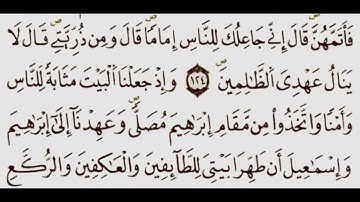 فَأَتَمَّهُنَّ قَالَ إِنِّى جَاعِلُكَ لِلنَّاسِ إِمَامًا قَالَ وَمِن ذُرِّيَّتِى قَالَ لَا
يَنَالُ عَهْدِى ٱلظَّـٰلِمِينَ ١٢٤ وَإِذْ جَعَلْنَا ٱلْبَيْتَ مَثَابَةً لِّلنَّاسِ
وَأَمْنًا وَٱتَّخَذُوا مِن مَّقَامِ إِبْرَٰهِيمَ مُصَلًّى وَعَهِدْنَآ إِلَىٰٓ إِبْرَٰهِيمَ
وَإِسْمَـٰعِيلَ أَن طَهِّرَا بَيْتِى لِلطَّآئِفِينَ وَٱلْعَـٰكِفِينَ وَٱلرُّكَّعِ